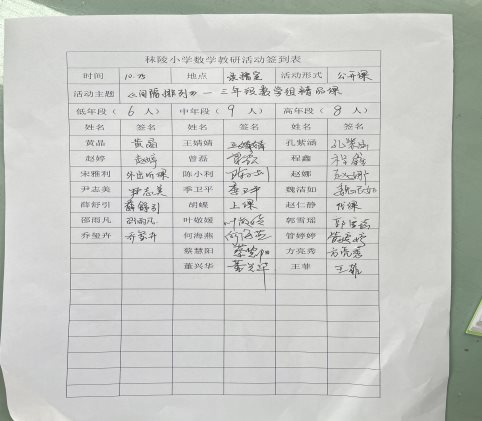 秣陵小学数学教研活动签到表
时间 10.25 地点 录播室 活动形式 公开课
活动主题 《间隔排列》—三年级数学组精品课
低年段（6人） 中年段（9人） 高年段（8人）
姓名 签名 姓名 签名 姓名 签名
黄晶 黄晶 王婧婧 王婧婧 孔紫涵 孔紫涵
赵婷 赵婷 曾磊 曾磊 程鑫 程鑫
宋雅利 外出听课 陈小利 陈小利 赵娜 赵娜
尹志美 尹志美 季卫平 季卫平 魏洁如 魏洁如
薛舒引 薛舒引 胡嵘 上课 赵仁静
邵雨凡 邵雨凡 叶敬媛 叶敬媛 郭雪瑶 郭雪瑶
乔玺卉 乔玺卉 何海燕 何海燕 管婷婷 管婷婷
蔡慧阳 蔡慧阳 方亮秀 方亮秀
董兴华 董兴华 王菲 王菲